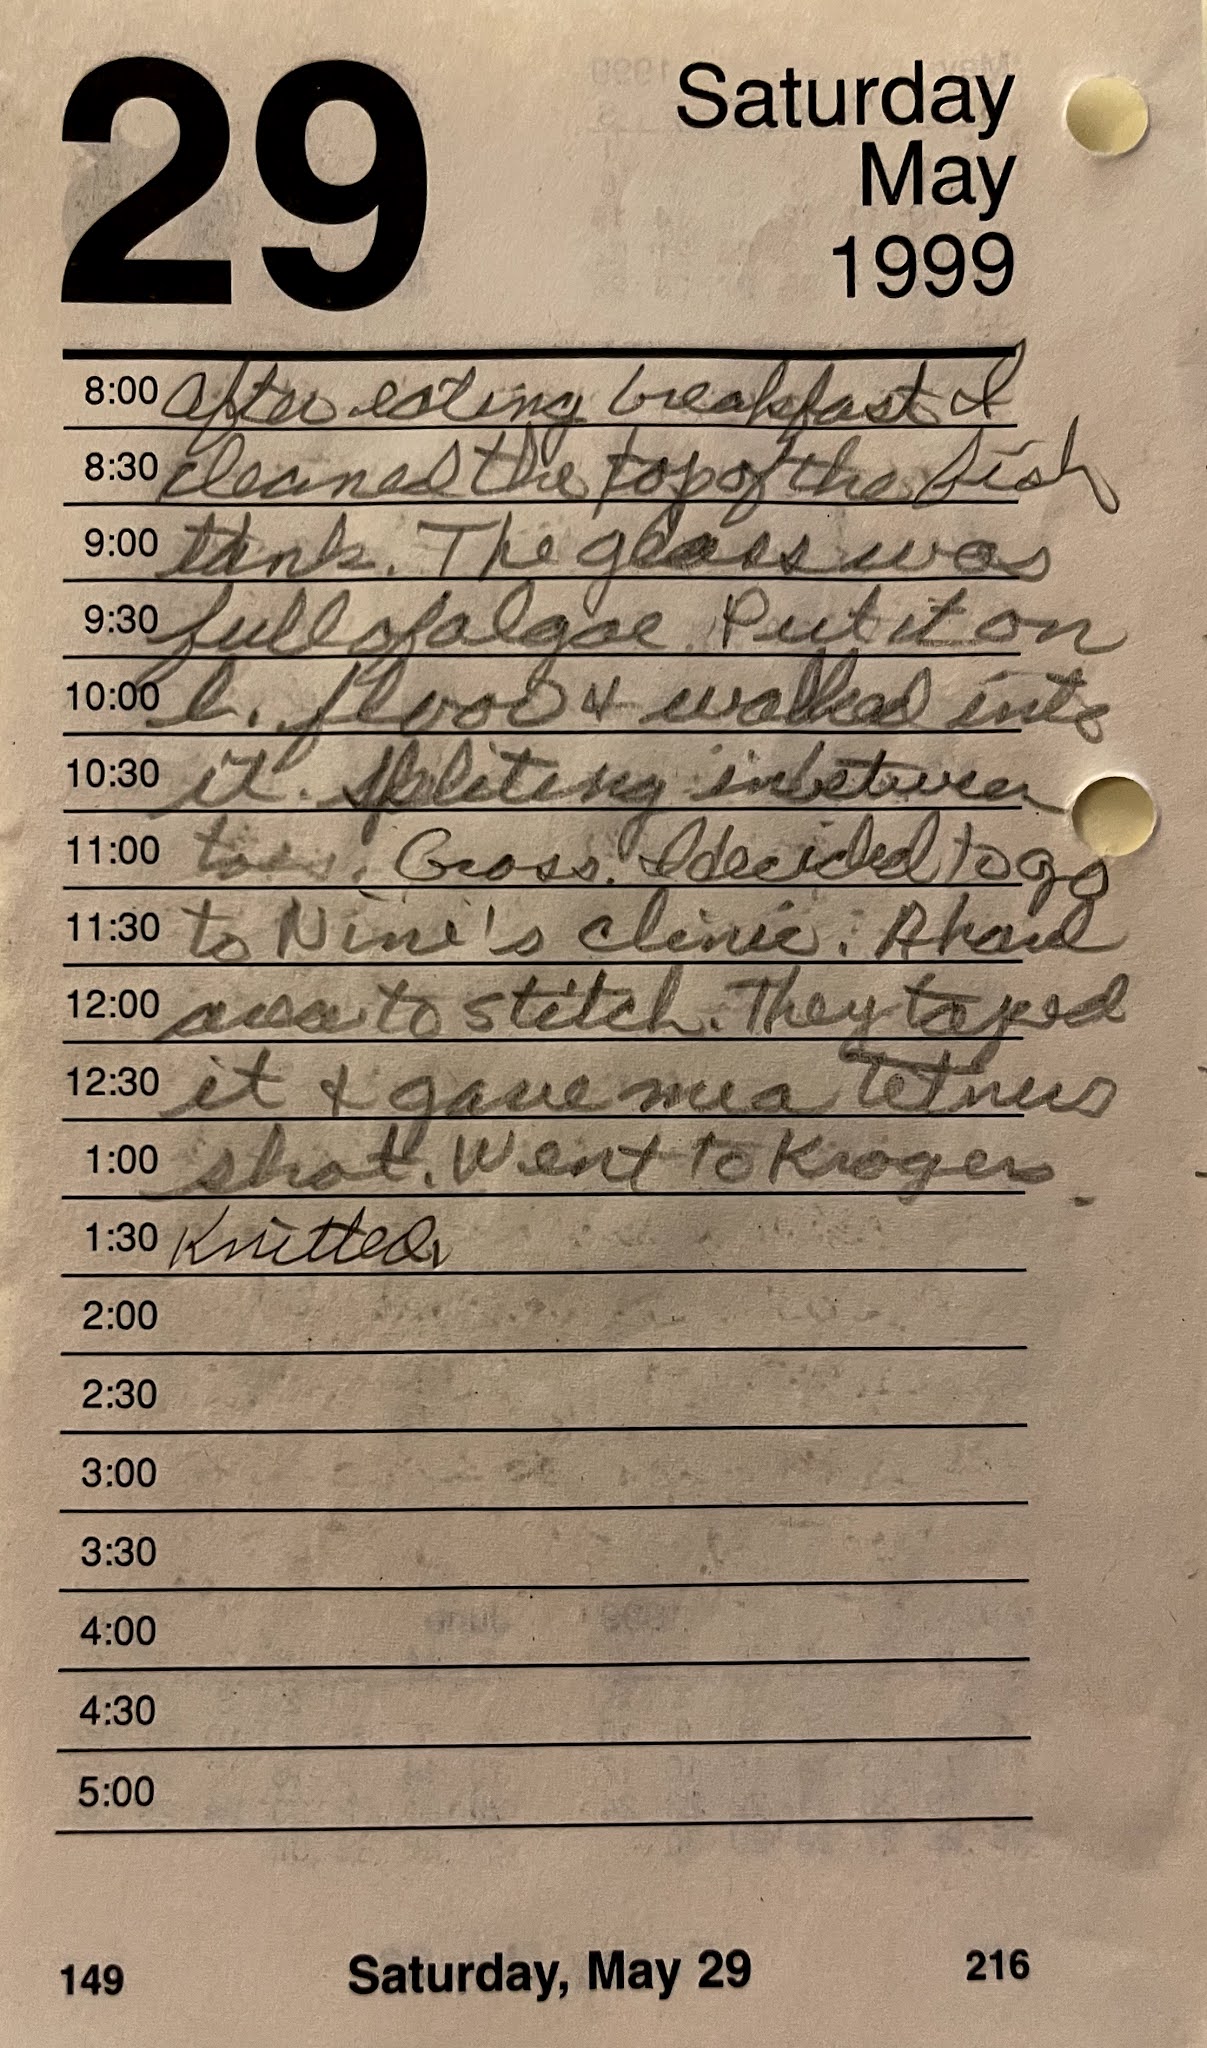 29
Saturday
May
1999
8:00 After eating breakfast I
8:30 cleaned the top of the fish
9:00 tank. The glass was
9:30 full of algae. Put it on
10:00 l. floor & walked into
10:30 it. Spliting inbetween
11:00 toes. Gross. I decided to go
11:30 to Nine's clinic. A hard
12:00 area to stitch. They taped
12:30 it & gave me a tetnus
1:00 shot. Went to Krogers.
1:30 Knitted.
2:00
2:30
3:00
3:30
4:00
4:30
5:00
149 Saturday, May 29 216